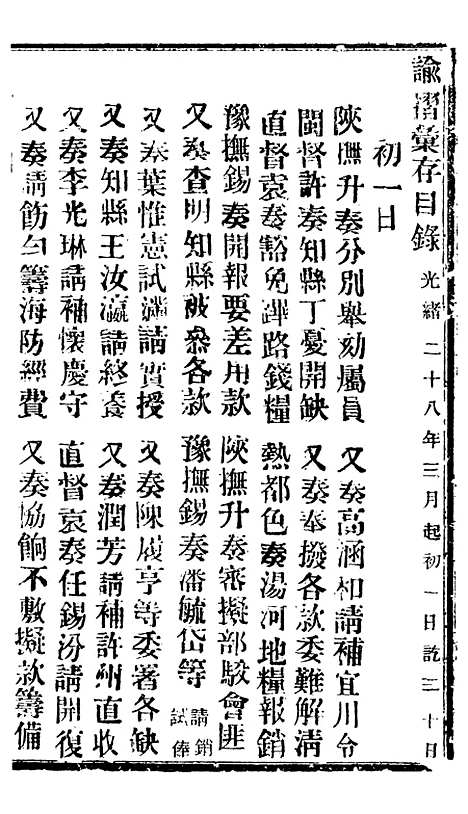 諭摺彙存目錄 光緒二十八年三月起初一日訖三十日
初一日
陜撫升奏分別舉劾屬員 又奏高涵和請補宜川令
閩督許奏知縣丁憂開缺 又奏奉撥各款委難解清
直督袁奏豁免鐵路錢糧 熱都色奏湯河地糧報銷
豫撫錫奏開報要差用款 陜撫升奏審擬部駁會匪
又奏查明知縣被參各款 豫撫錫奏潘毓岱等請銷試俸
又奏葉惟憲試滿請實授 又奏陳履亨等委署各缺
又奏知縣王汝瀛請終養 又奏潤芳請補許州直收
又奏李光琳請補懷慶守 直督袁奏任錫汾請開復
又奏請飭勻籌海防經費 又奏協餉不敷擬款籌備